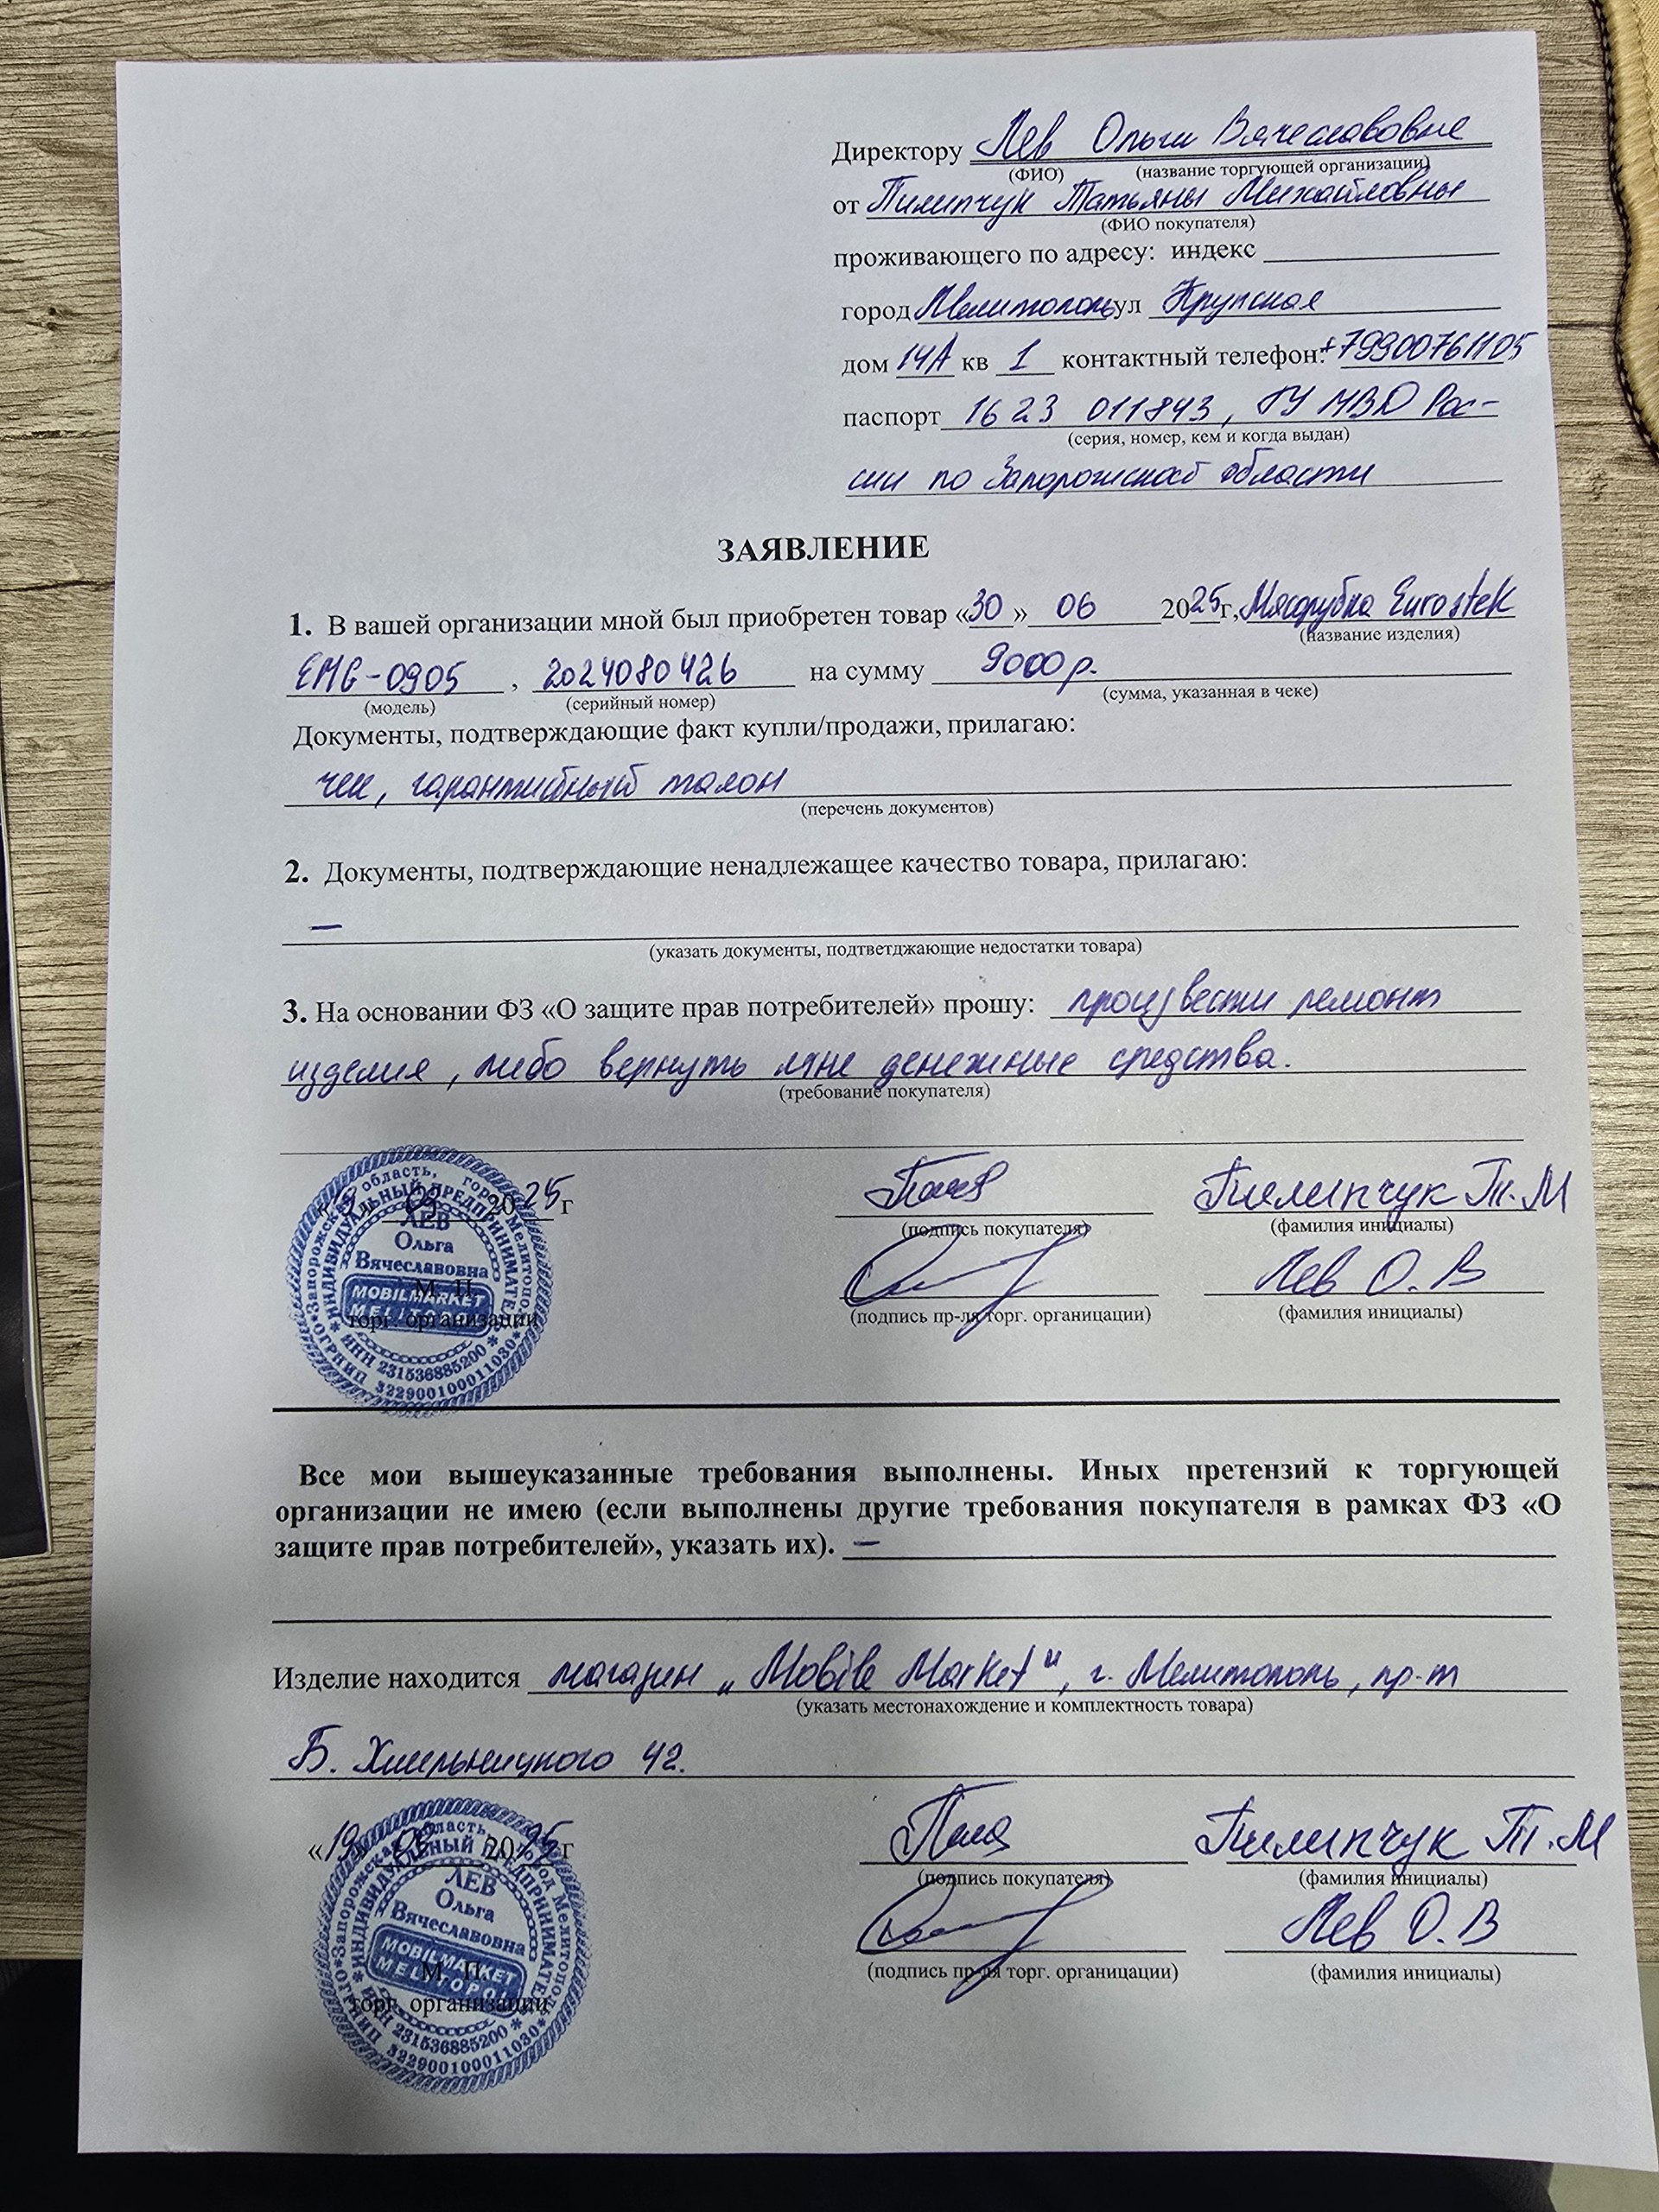 Директору Лев Ольги Вячеславовне
(ФИО) (название торгующей организации)
от Пилипчук Татьяны Михайловны
(ФИО покупателя)
проживающего по адресу: индекс
город Мелитополь ул Крупская
дом 14А кв 1 контактный телефон: +79900761105
паспорт 1623 011843, ГУ МВД Рос-
(серия, номер, кем и когда выдан)
сии по Запорожской области
ЗАЯВЛЕНИЕ
1. В вашей организации мной был приобретен товар «30» 06 2025г, Мясорубка Eurostek
(название изделия)
EMG-0905, 2024080426 на сумму 9000 р.
(модель) (серийный номер) (сумма, указанная в чеке)
Документы, подтверждающие факт купли/продажи, прилагаю:
чек, гарантийный талон
(перечень документов)
2. Документы, подтверждающие ненадлежащее качество товара, прилагаю:
—
(указать документы, подтветджающие недостатки товара)
3. На основании ФЗ «О защите прав потребителей» прошу: произвести ремонт
изделия, либо вернуть мне денежные средства.
(требование покупателя)
2025г Пилипчук Т.М
(подпись покупателя) (фамилия инициалы)
Лев О.В
(подпись пр-ля торг. органицации) (фамилия инициалы)
М. П.
торг. организации
Запорожская область, город Мелитополь
ИНДИВИДУАЛЬНЫЙ ПРЕДПРИНИМАТЕЛЬ
ЛЕВ
Ольга
Вячеславовна
MOBILMARKET
MELITOPOL
ИНН 231536885200
ОГРНИП 322900100011030
Все мои вышеуказанные требования выполнены. Иных претензий к торгующей
организации не имею (если выполнены другие требования покупателя в рамках ФЗ «О
защите прав потребителей», указать их). —
Изделие находится магазин „Mobile Market", г. Мелитополь, пр-т
(указать местонахождение и комплектность товара)
Б. Хмельницкого 42.
«19» 2025г Пилипчук Т.М
(подпись покупателя) (фамилия инициалы)
Лев О.В
(подпись пр-ля торг. органицации) (фамилия инициалы)
М. П.
торг. организации
Запорожская область, город Мелитополь
ИНДИВИДУАЛЬНЫЙ ПРЕДПРИНИМАТЕЛЬ
ЛЕВ
Ольга
Вячеславовна
MOBILMARKET
MELITOPOL
ИНН 231536885200
ОГРНИП 322900100011030